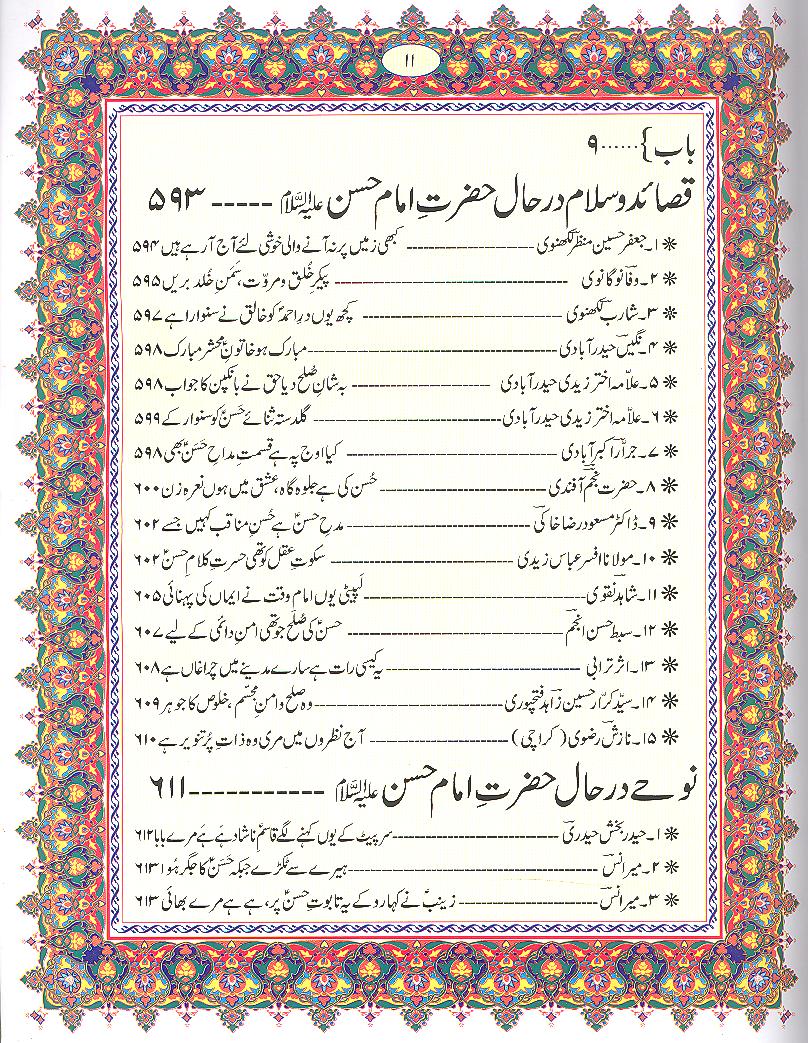 ۱۱
باب}......۹
قصائد و سلام در حال حضرتِ امام حسن علیہ السلام ----- ۵۹۳
❋ ۱۔ جعفر حسین منظر لکھنوی ---------- کبھی زمیں پر نہ آنے والی خوشی لئے آج آرہے ہیں ۵۹۴
❋ ۲۔ وفا نوگانوی ---------- پیکرِ خُلق و مروّت، سَمنِ خُلد بریں ۵۹۵
❋ ۳۔ شارب لکھنوی ---------- کچھ یوں درِ احمدؐ کو خالق نے سنوارا ہے ۵۹۷
❋ ۴۔ نگیں حیدرآبادی ---------- مبارک ہو خاتونِ محشر مبارک ۵۹۸
❋ ۵۔ علّامہ اختر زیدی حیدرآبادی ---------- بہ شانِ صُلح دیا حق نے بانکپن کا جواب ۵۹۸
❋ ۶۔ علّامہ اختر زیدی حیدرآبادی ---------- گلدستہ ثنائے حسنؑ کو سنوار کے ۵۹۹
❋ ۷۔ جرار اکبرآبادی ---------- کیا اوج پہ ہے قسمتِ مداحِ حَسنؑ بھی ۵۹۸
❋ ۸۔ حضرت نجم آفندی ---------- حُسن کی ہے جلوہ گاہ، عشق میں ہوں نعرہ زن ۶۰۰
❋ ۹۔ ڈاکٹر مسعود رضا خاکی ---------- مدحِ حسنؑ ہے حُسنِ مناقب کہیں جسے ۶۰۲
❋ ۱۰۔ مولانا افسر عباس زیدی ---------- سکوتِ عقل کو تھی حسرتِ کلامِ حسنؑ ۶۰۲
❋ ۱۱۔ شاہد نقوی ---------- لپیٹی یوں امام وقت نے ایماں کی پہنائی ۶۰۵
❋ ۱۲۔ سبط حسن انجم ---------- حسنؑ کی صُلح جو تھی امنِ دائمی کے لیے ۶۰۷
❋ ۱۳۔ اثر ترابی ---------- یہ کیسی رات ہے سارے مدینے میں چراغاں ہے ۶۰۸
❋ ۱۴۔ سیّد کرّار حسین زاہد فتحپوری ---------- وہ صلح و امنِ مجسّم، خلوص کا جوہر ۶۰۹
❋ ۱۵۔ نازش رضوی (کراچی) ---------- آج نظروں میں مری وہ ذاتِ پُر تنویر ہے ۶۱۰
نوحے در حال حضرتِ امام حسن علیہ السلام ----------- ۶۱۱
❋ ۱۔ حیدر بخش حیدری ---------- سر پیٹ کے یوں کہنے لگے قاسمؑ ناشاد ہے ہے مرے بابا ۶۱۲
❋ ۲۔ میر انس ---------- ہیرے سے ٹکڑے جبکہ حَسنؑ کا جگر ہُوا ۶۱۳
❋ ۳۔ میر انس ---------- زینبؑ نے کہا رو کے یہ تابوتِ حسنؑ پر، ہے ہے مرے بھائی ۶۱۳